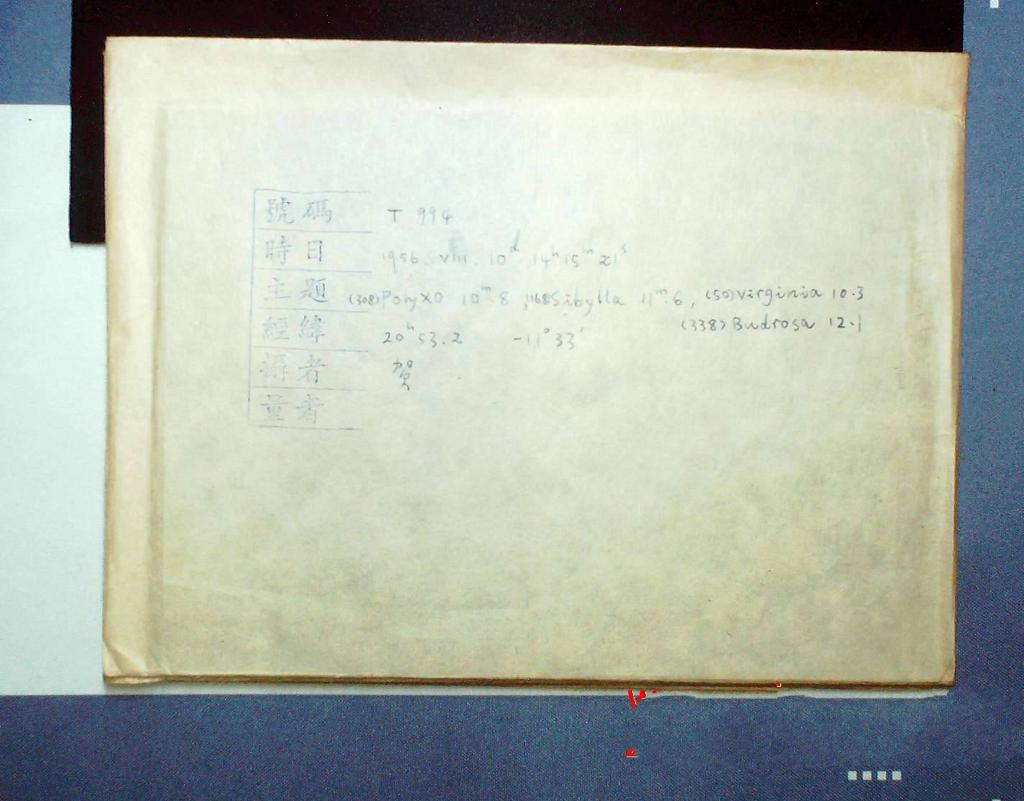 號碼 T 994
時日 1956 VIII 10d 14h 15m 21s
主題 (308) Polyxo 10m.8, (168) Sibylla 11m.6, (50) Virginia 10.3
(338) Budrosa 12.1
經緯 20h 53.2 -11° 33'
攝者 贺
量者